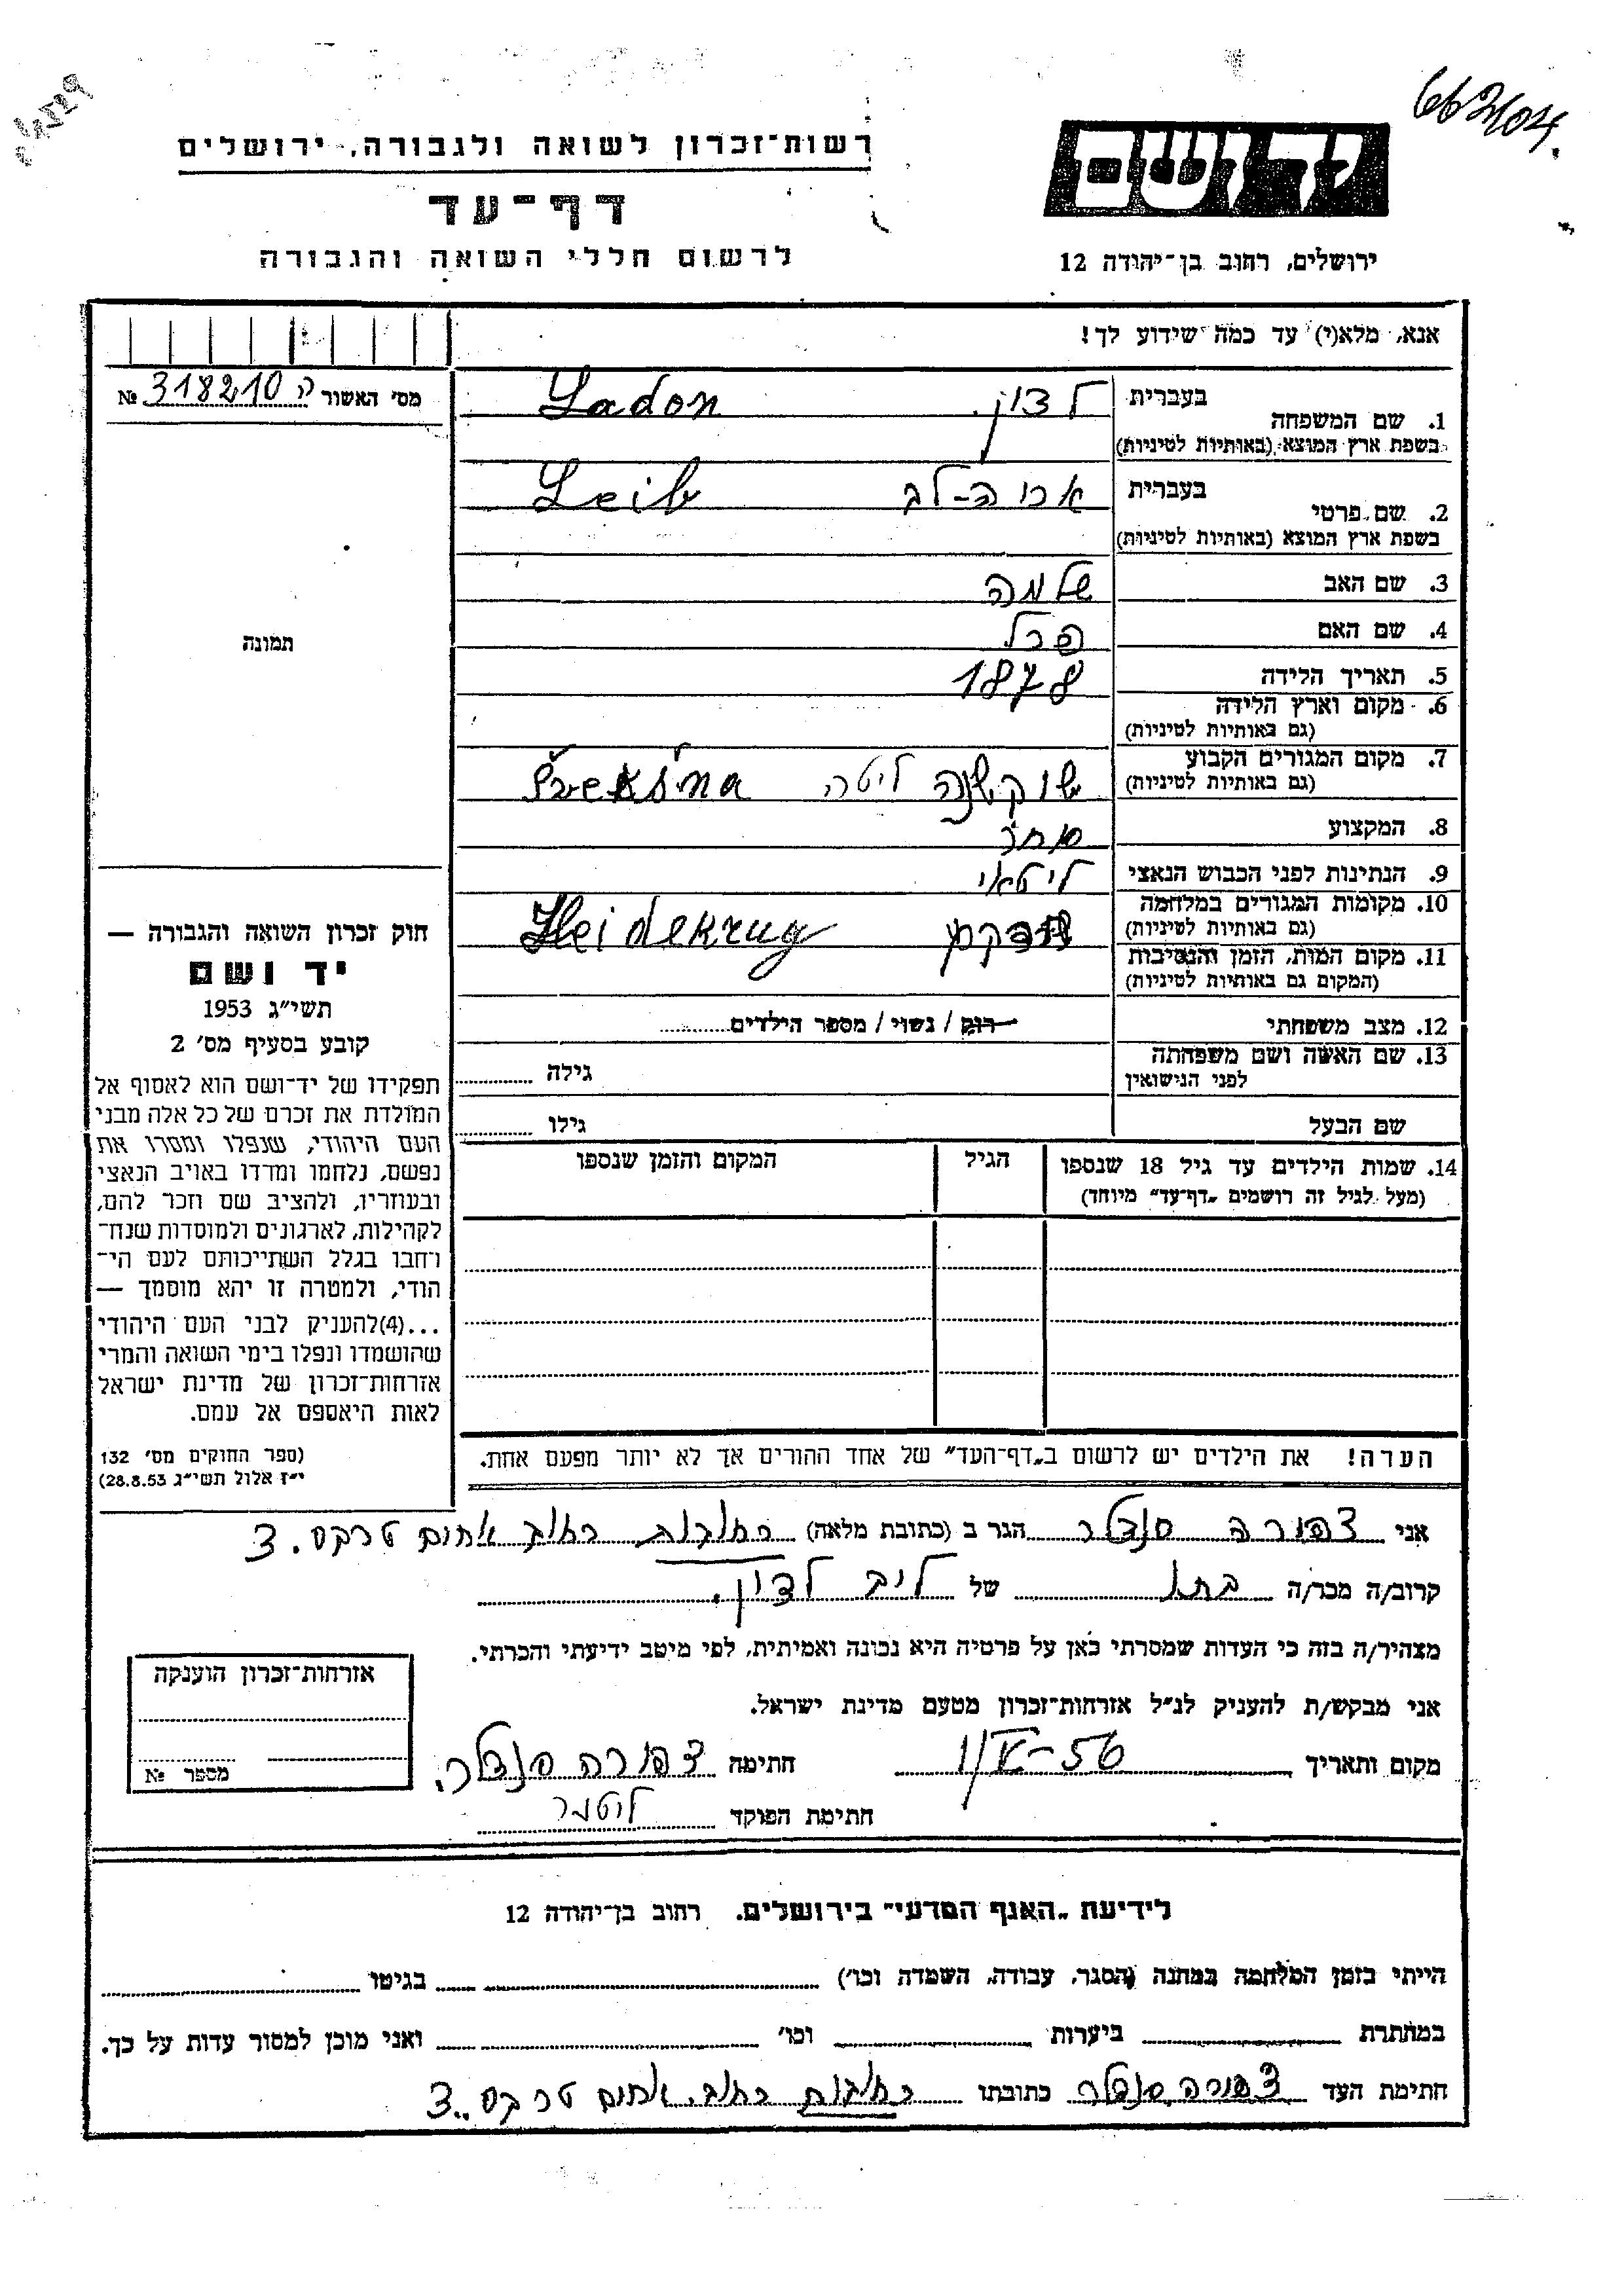 663104
רשות־זכרון לשואה ולגבורה, ירושלים
יד ושם
דף־עד
לרשום חללי השואה והגבורה
ירושלים, רחוב בן־יהודה 12
אנא, מלא(י) עד כמה שידוע לך!
מס׳ האשור ה 318210 №
1. שם המשפחה
בעברית לדון. Ladon
בשפת ארץ המוצא (באותיות לטיניות)
2. שם פרטי
בעברית אריה-לב Leib
בשפת ארץ המוצא (באותיות לטיניות)
3. שם האב שלמה
4. שם האם פרל
5. תאריך הלידה 1878
6. מקום וארץ הלידה
(גם באותיות לטיניות)
7. מקום המגורים הקבוע שוקשנה ליטה Švekšna
(גם באותיות לטיניות)
8. המקצוע סוחר
9. הנתינות לפני הכבוש הנאצי ליטאי
10. מקומות המגורים במלחמה Heidekrug
(גם באותיות לטיניות)
11. מקום המות, הזמן והנסיבות
(המקום גם באותיות לטיניות)
12. מצב משפחתי רוק / נשוי / מספר הילדים
13. שם האשה ושם משפחתה
לפני הנישואין
גילה
שם הבעל גילו
14. שמות הילדים עד גיל 18 שנספו
(מעל לגיל זה רושמים „דף־עד״ מיוחד)
הגיל
המקום והזמן שנספו
הערה! את הילדים יש לרשום ב„דף־העד״ של אחד ההורים אך לא יותר מפעם אחת.
תמונה
חוק זכרון השואה והגבורה —
יד ושם
תשי״ג 1953
קובע בסעיף מס׳ 2
תפקידו של יד־ושם הוא לאסוף אל
המולדת את זכרם של כל אלה מבני
העם היהודי, שנפלו ומסרו את
נפשם, נלחמו ומרדו באויב הנאצי
ובעוזריו, ולהציב שם וזכר להם,
לקהילות, לארגונים ולמוסדות שנח־
רחבו בגלל השתייכותם לעם הי־
הודי, ולמטרה זו יהא מוסמך —
...(4)להעניק לבני העם היהודי
שהושמדו ונפלו בימי השואה והמרי
אזרחות־זכרון של מדינת ישראל
לאות היאספם אל עמם.
(ספר החוקים מס׳ 132
י״ז אלול תשי״ג 28.8.53)
אני צפורה סנדלר הגר ב (כתובת מלאה) רחובות רחוב אחים טרקס. 3
קרוב/ה מכר/ה בתו של ליב לדון.
מצהיר/ה בזה כי העדות שמסרתי כאן על פרטיה היא נכונה ואמיתית, לפי מיטב ידיעתי והכרתי.
אני מבקש/ת להעניק לנ״ל אזרחות־זכרון מטעם מדינת ישראל.
מקום ותאריך 1/V-56 חתימה צפורה סנדלר.
חתימת הפוקד
אזרחות־זכרון הוענקה
מספר №
לידיעת „האגף המדעי״ בירושלים. רחוב בן־יהודה 12
הייתי בזמן המלחמה במחנה (הסגר, עבודה, השמדה וכו׳) בגיטו
במחתרת ביערות וכו׳ ואני מוכן למסור עדות על כך.
חתימת העד צפורה סנדלר כתובתו רחובות רחוב אחים טרקס. 3